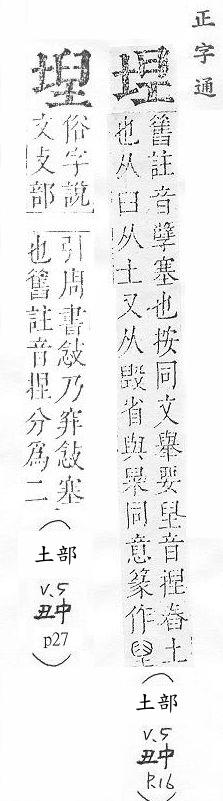 正字通
舊註音孽塞也按同文舉要圼音揑舂土
也从臼从土又从毀省與同意篆作
(土部
v.5
丑中
P.16)
俗字說
文攴部
引周書敜乃穽敜塞
也舊註音揑分爲二
(土部
v.5
丑中
p27)